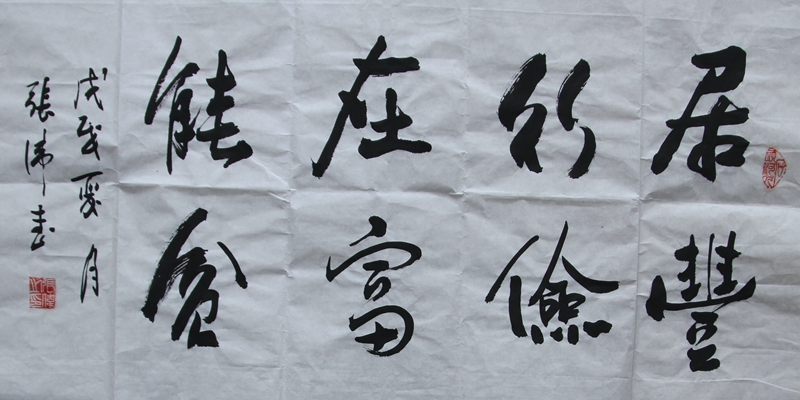 居豐
行儉
在富
能貧
戊戌夏月
張書